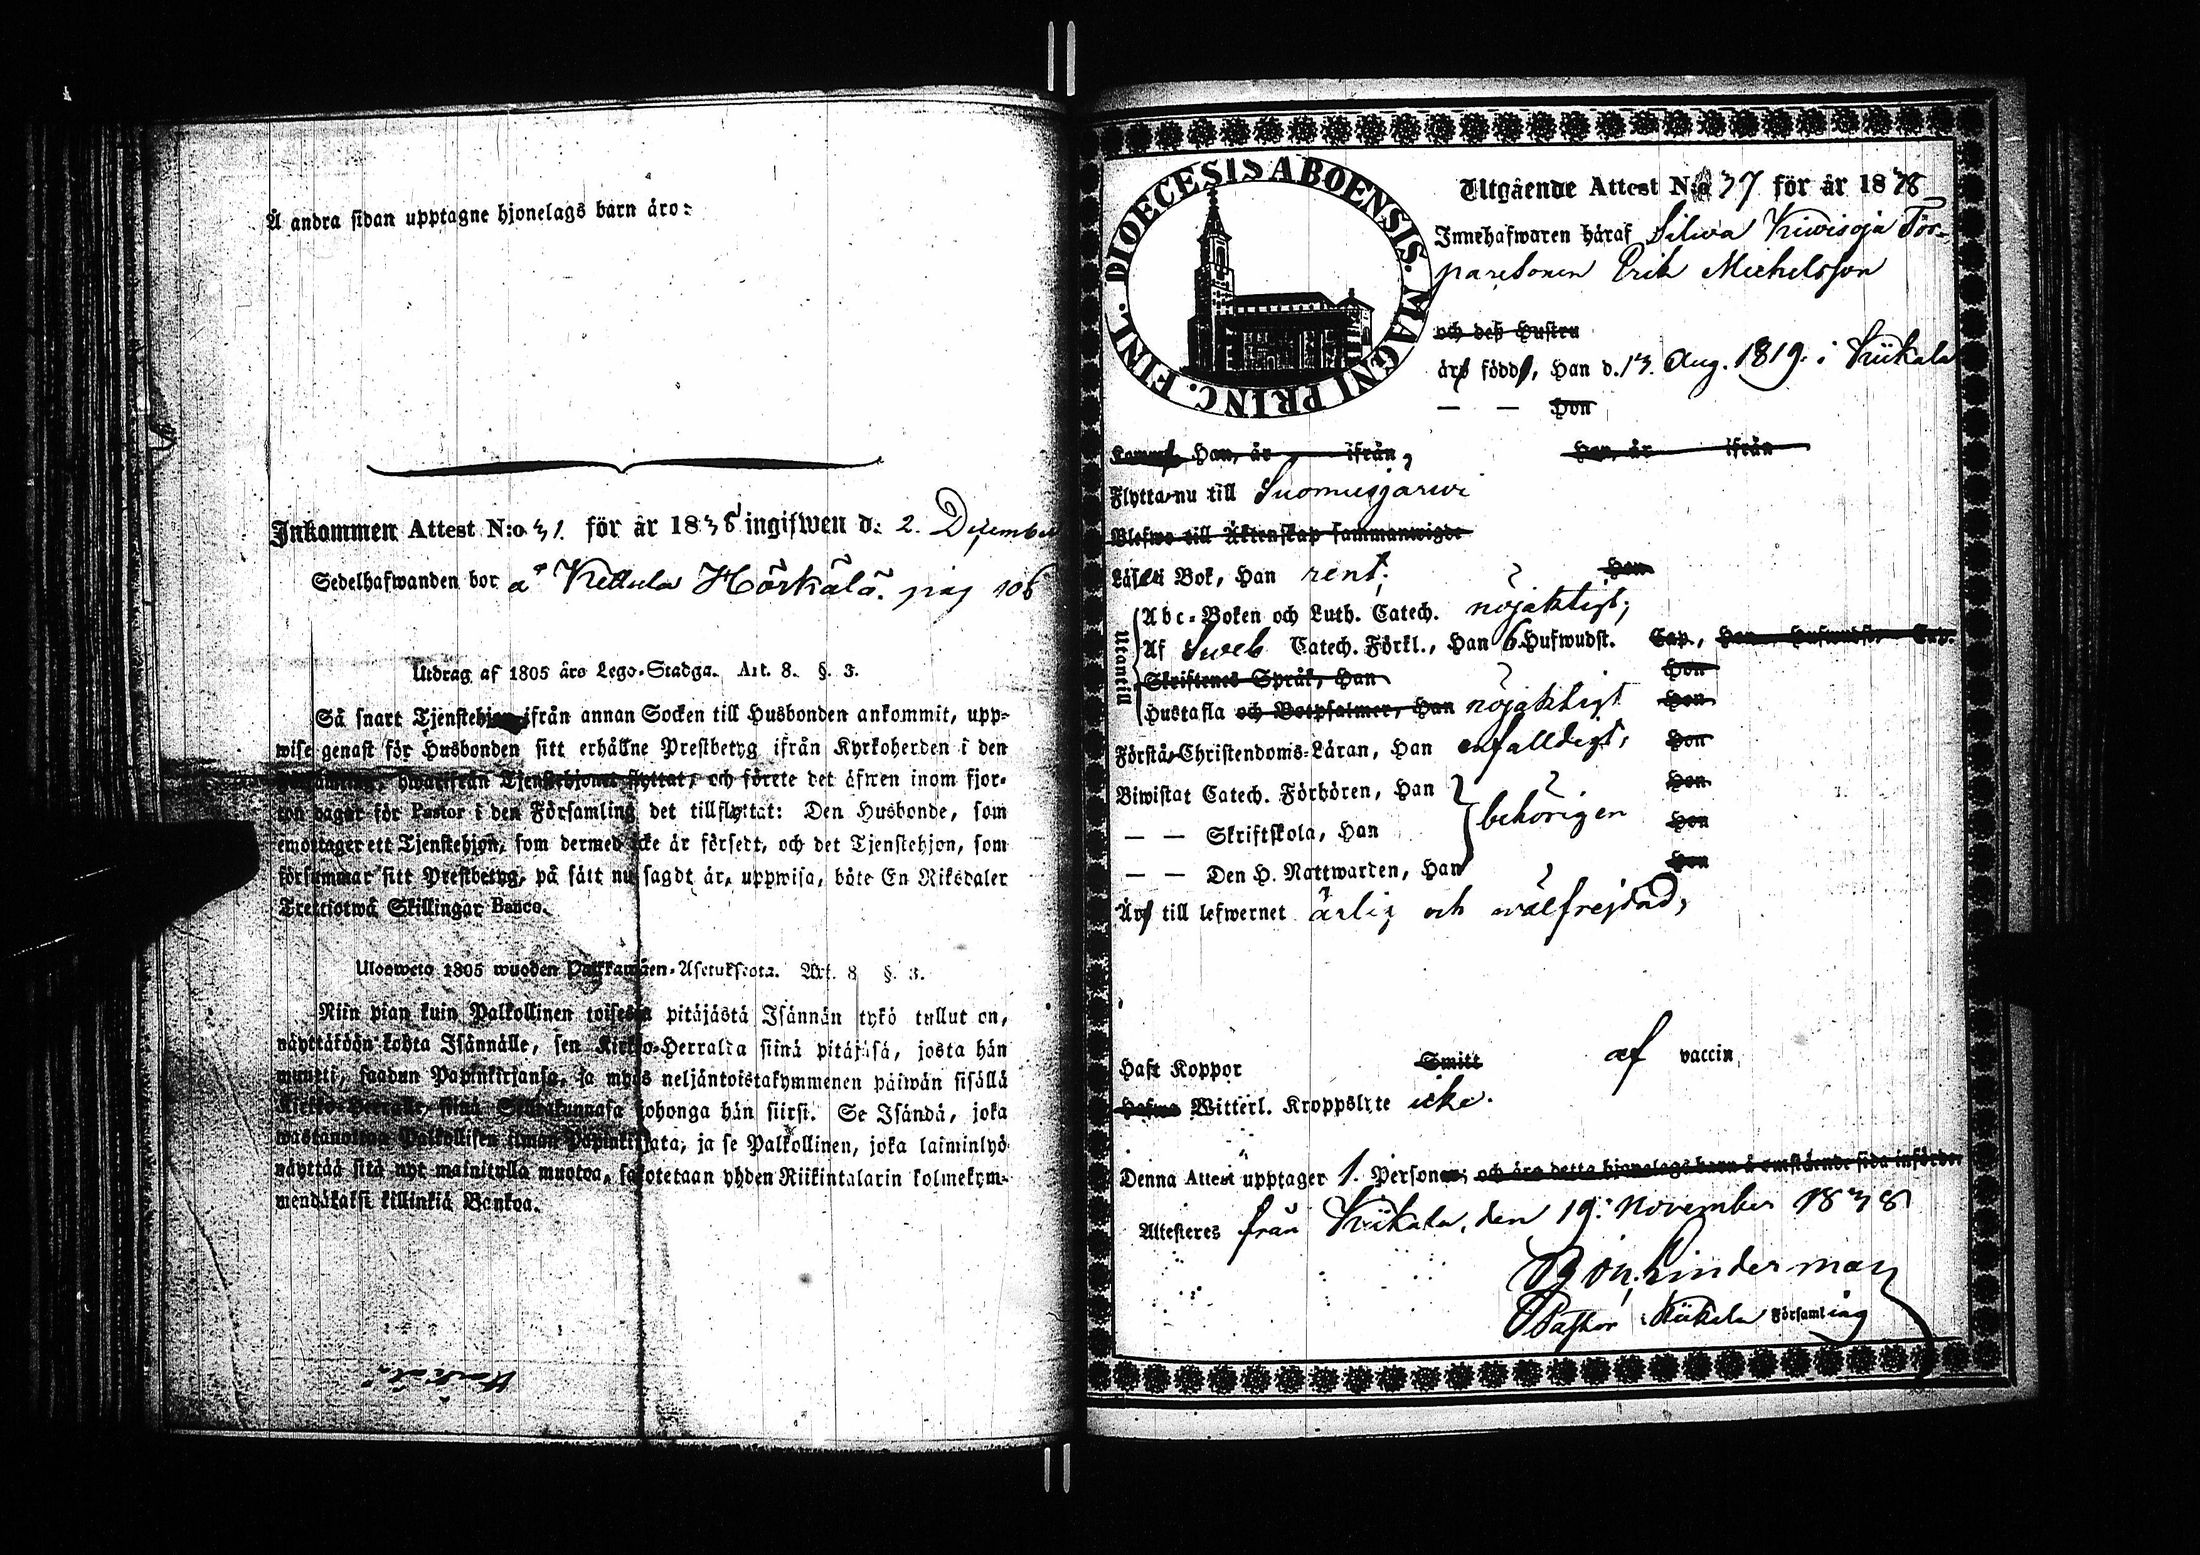 Å andra sidan upptagne hjonelags barn äro:
Inkommen Attest N:o 31. för år 1838 ingifwen d: 2. December
Sedelhafwanden bor å Kettula Hörkälä. pag 106
Utdrag af 1805 års Lego-Stadga. Art. 8. §. 3.
Så snart Tjenstehjon ifrån annan Socken till Husbonden ankommit, upp-
wise genast för Husbonden sitt erhållne Prestbetyg ifrån Kyrkoherden i den
hwarifrån Tjenstehjonet flyttat, och förete det äfwen inom fjor-
ton dagar för Pastor i den Församling det tillflyttat: Den Husbonde, som
emottager ett Tjenstehjon, som dermed icke är försedt, och det Tjenstehjon, som
försummar sitt Prestbetyg, på sätt nu sagdt är, uppwisa, böte En Riksdaler
Trettiotwå Skillingar Banco.
Ulosweto 1805 wuoden Palkkawäen-Asetuksesta. Art. 8 §. 3.
Niin pian kuin Palkollinen toisesta pitäjästä Isännän tykö tullut on,
näyttäköön kohta Isännälle, sen Kirkko-Herralta siinä pitäjäsä, josta hän
muutti, saadun Papinkirjansa, ja myös neljäntoistakymmenen päiwän sisällä
Kirkko-Herralle siinä Seurakunnasa johonga hän siirsi. Se Isändä, joka
wastanottaa Palkollisen ilman Papinkirjata, ja se Palkollinen, joka laiminlyö
näyttää sitä nyt mainitulla muotoa, sakotetaan yhden Riikintalarin kolmekym-
mendäkaksi killinkiä Bankoa.
Hörkälä
DIOECESIS ABOENSIS. MAGNI PRINC. FINL.
Utgående Attest N:o 37 för år 1838
Innehafwaren häraf Silwa Kiwisoja Tor-
paresonen Erik Michelsson
och deß Hustru
äro födde, Han d. 13. Aug. 1819. i Kiikala
— — Hon
Komne Han, år ifrån, Hon, år ifrån
Flytta nu till Suomusjärwi
Blefwo till Äktenskap sammanwigde
Läsa i Bok, Han rent; Hon
Utantill
Abc-Boken och Luth. Catech. nöjaktigt;
Af Sweb Catech. Förkl., Han 6 Hufwudst. Cap., Hon Hufwudst. Cap.
Skriftenes Språk, Han Hon
Hustafla och Botpsalmer, Han nöjaktigt Hon
Förstå Christendoms-Läran, Han enfalldigt, Hon
Biwistat Catech. Förhören, Han Hon
— — Skriftskola, Han behörigen Hon
— — Den H. Nattwarden, Han Hon
Äro till lefwernet ärlig och wälfrejdad,
Haft Koppor Smitt af vaccin
Hafwa Witterl. Kroppslyte icke.
Denna Attest upptager 1. Personer; och äro detta hjonelags barn å omstående sida införde
Attesteres från Kiikala, den 19. November 1838
Benj. Linderman
Pastor i Kiikala Församling